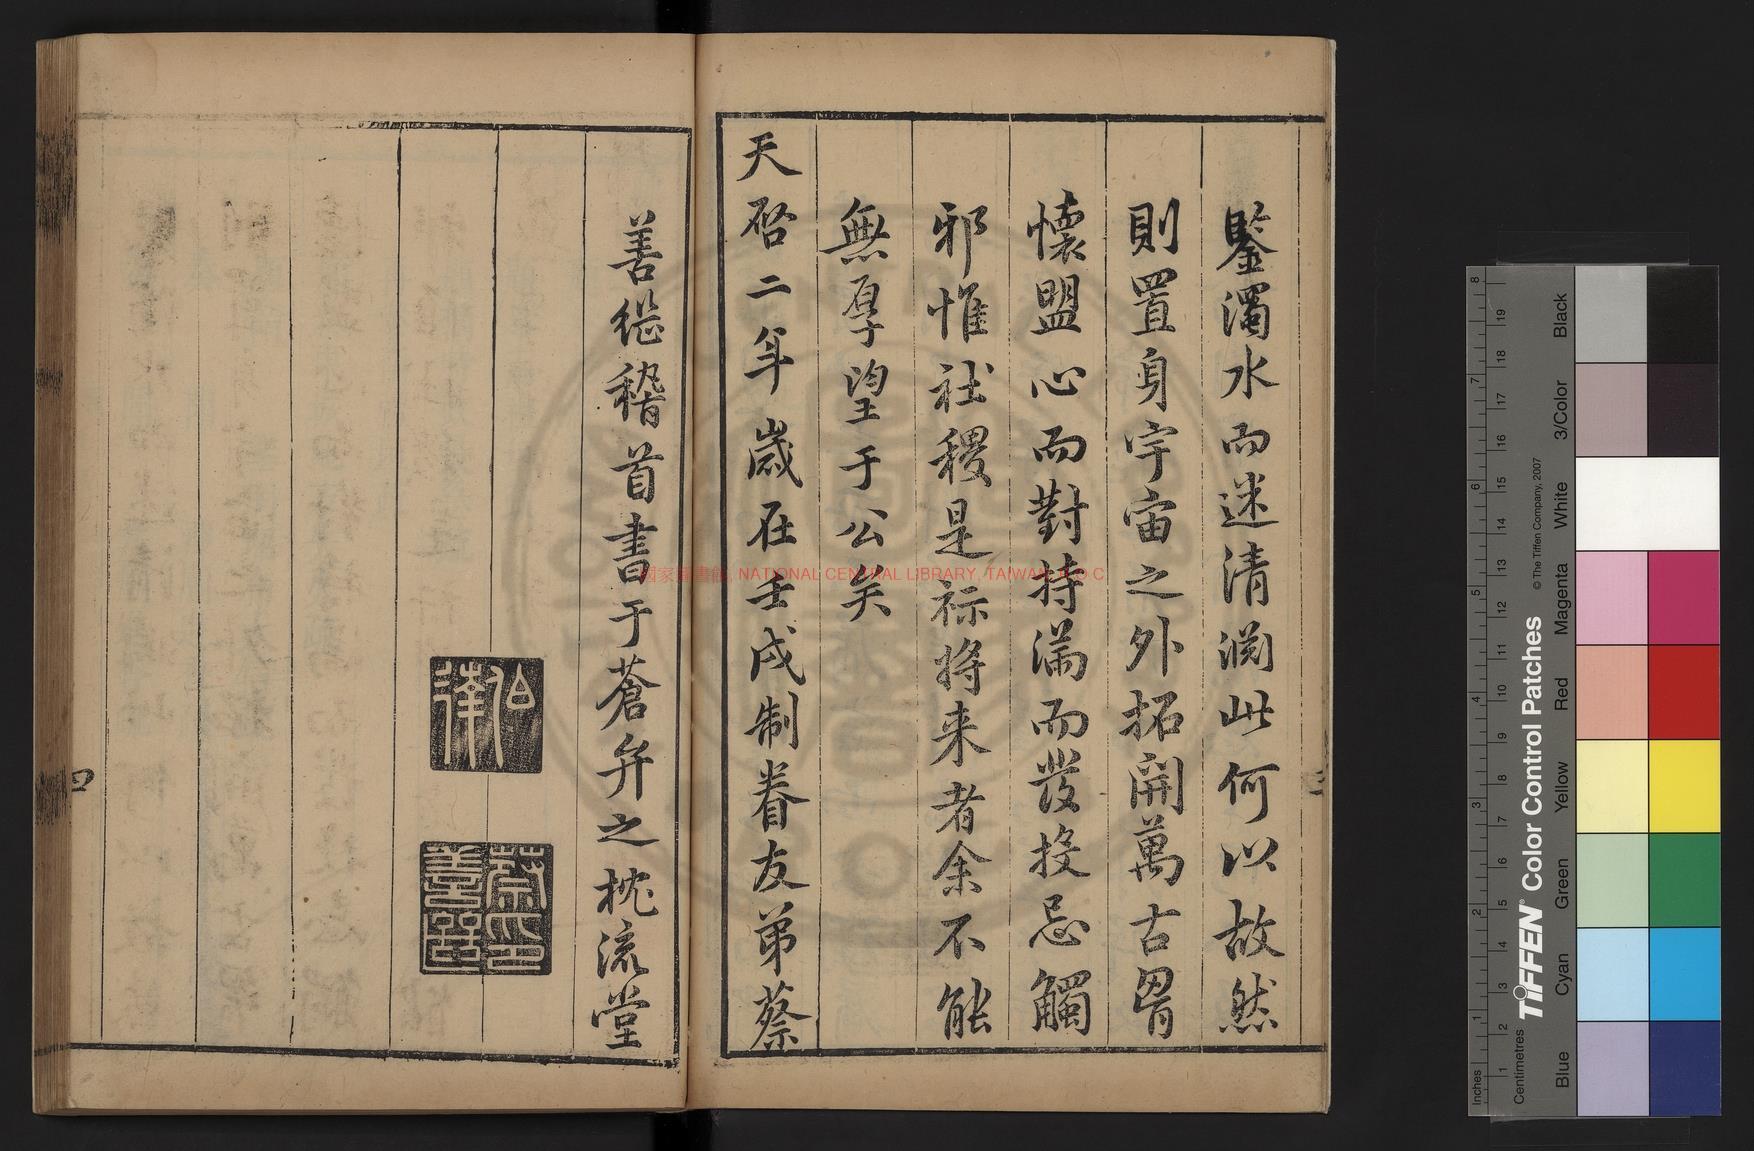 鍳濁水而迷清淵此何以故然
則置身宇宙之外拓開萬古胷
懷盟心而對持滿而發投忌觸
邪惟社稷是祢将来者余不能
無厚望于公矣
天啓二年歲在壬戌制眷友弟蔡
善繼稽首書于蒼弁之枕流堂
四
國家圖書館, NATIONAL CENTRAL LIBRARY, TAIWAN, R.O.C
蔡印善繼
Inches
1
2
3
4
5
6
7
8
Centimetres
1
2
3
4
5
6
7
8
9
10
11
12
13
14
15
16
17
18
19
TIFFEN® Color Control Patches
© The Tiffen Company, 2007
Blue
Cyan
Green
Yellow
Red
Magenta
White
3/Color
Black